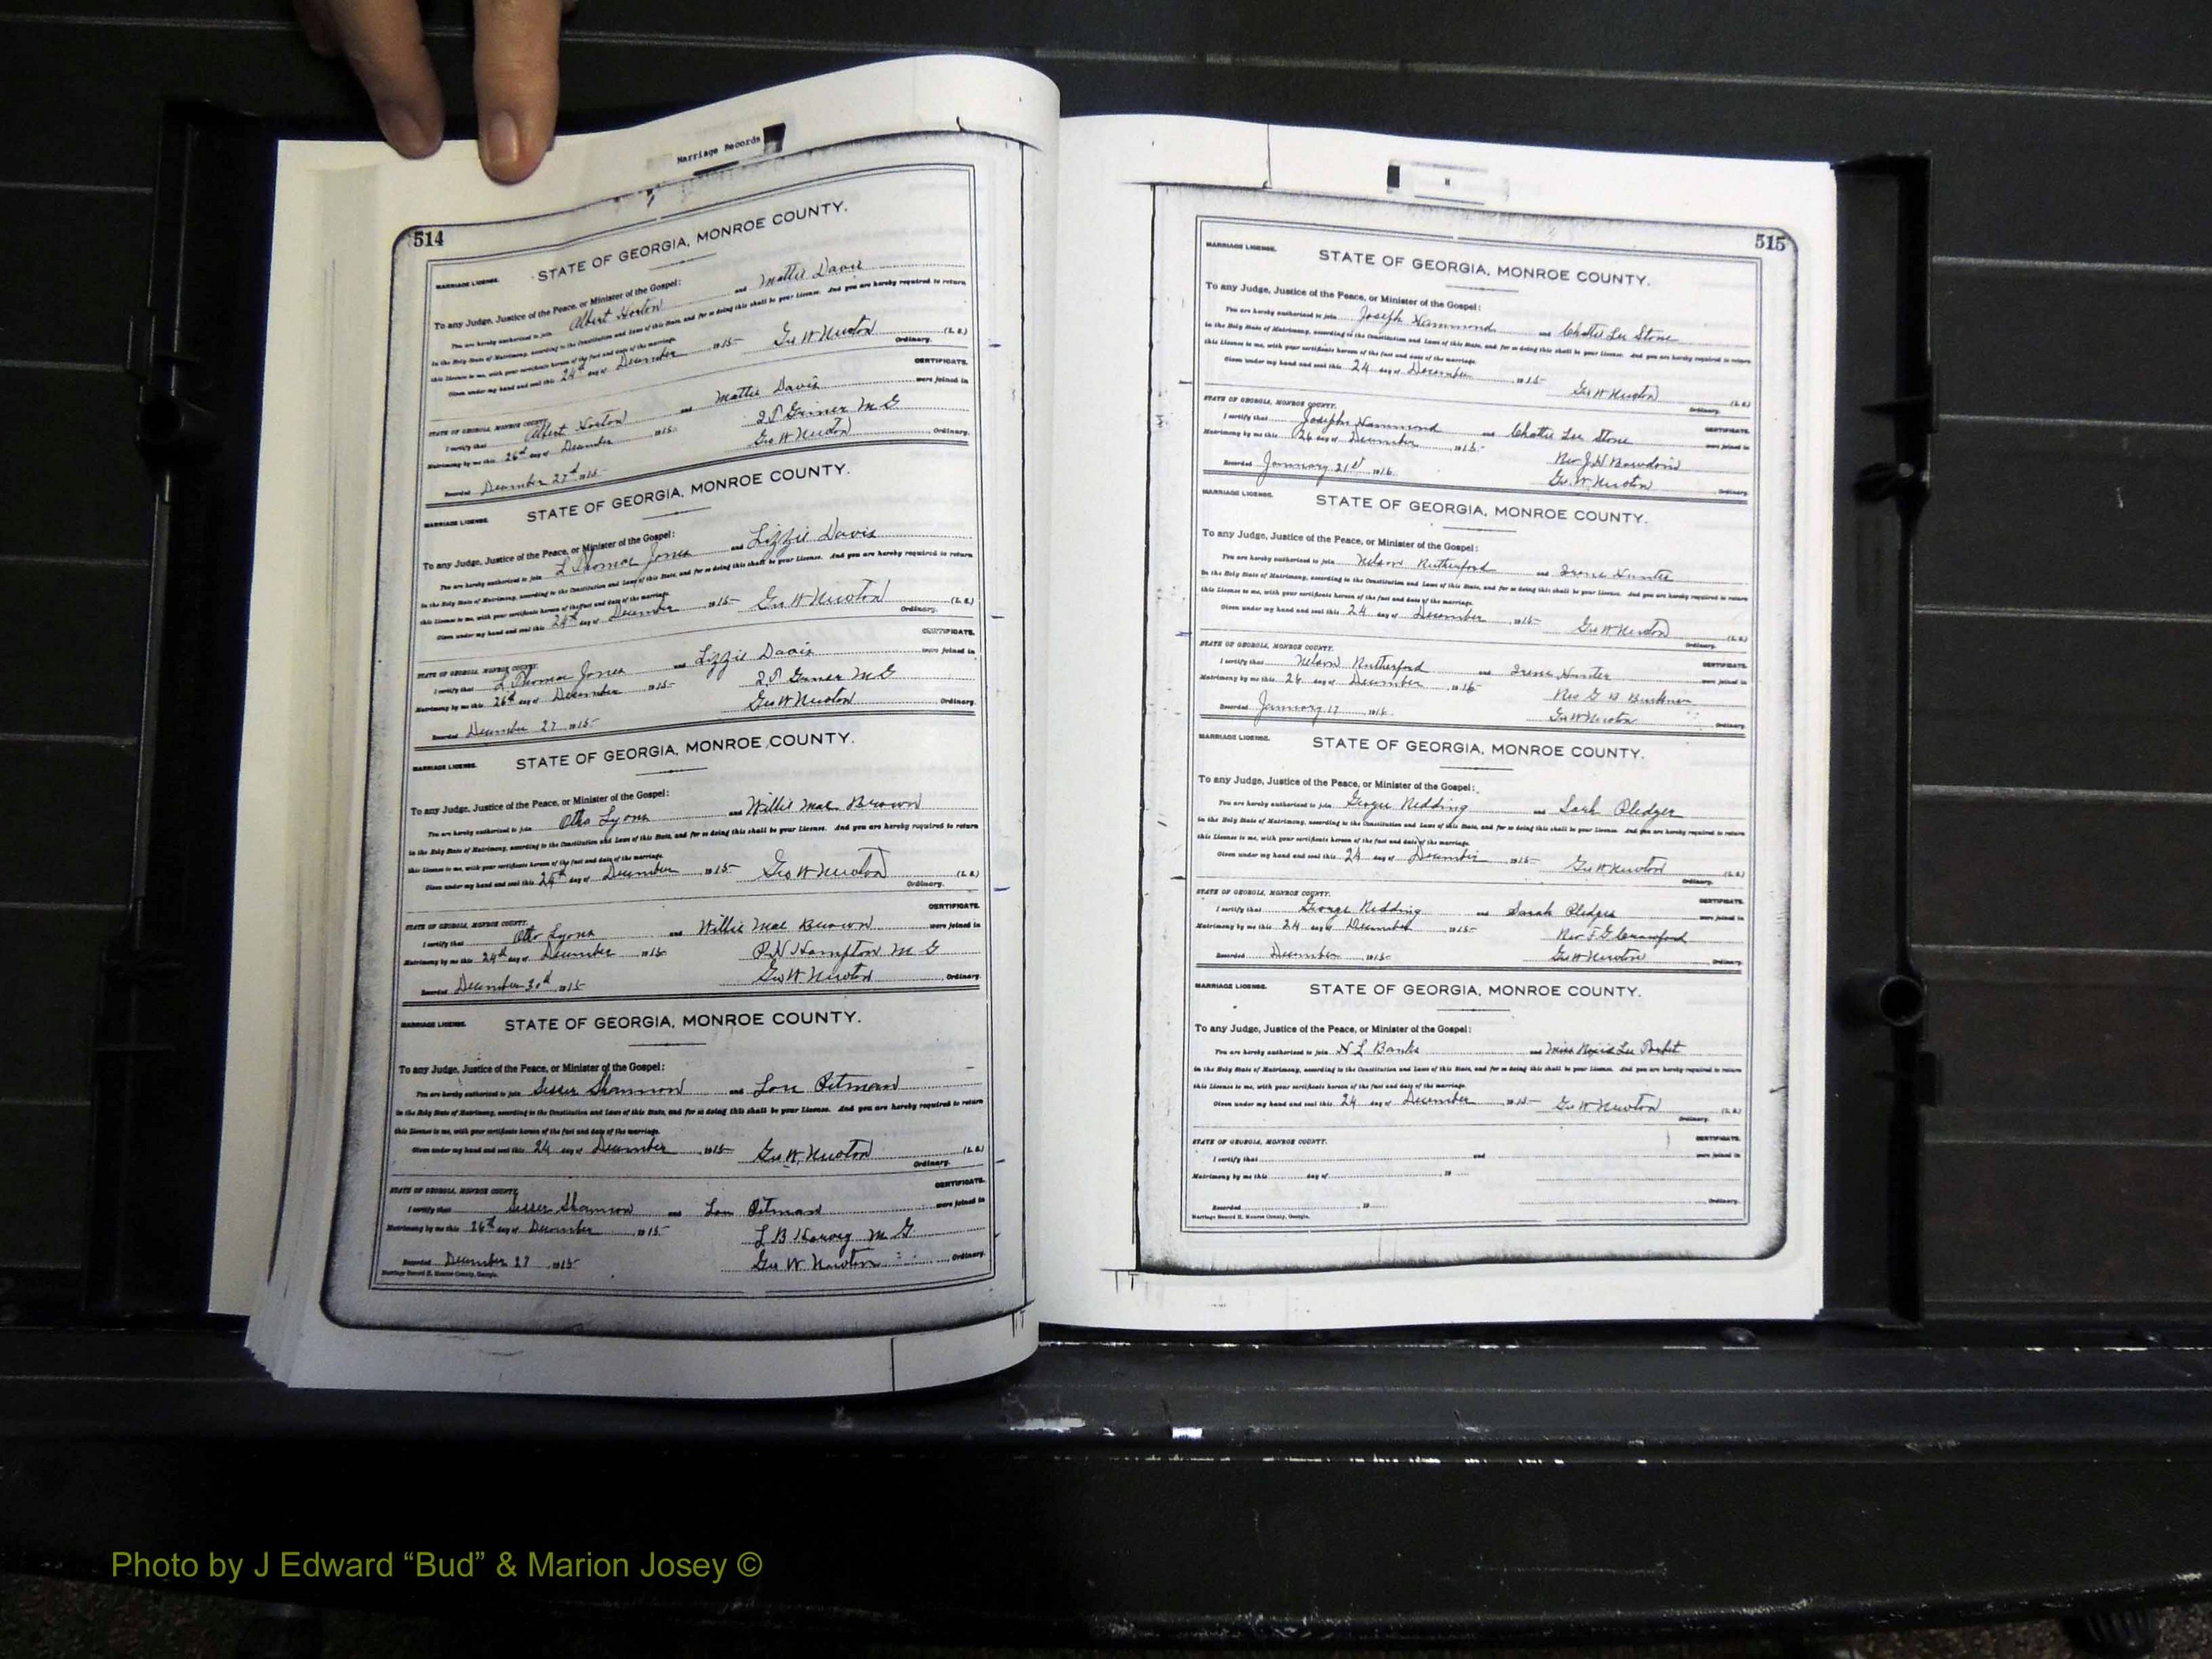 Marriage Records
514
MARRIAGE LICENSE. STATE OF GEORGIA, MONROE COUNTY.
To any Judge, Justice of the Peace, or Minister of the Gospel:
You are hereby authorized to join Albert Horton and Mattie Davis
in the Holy State of Matrimony, according to the Constitution and Laws of this State, and for so doing this shall be your License. And you are hereby required to return
this License to me, with your certificate hereon of the fact and date of the marriage.
Given under my hand and seal this 24th day of December 1915 Geo W Newton (L. S.)
Ordinary.
STATE OF GEORGIA, MONROE COUNTY. CERTIFICATE.
I certify that Albert Horton and Mattie Davis were joined in
Matrimony by me this 26th day of December 1915 M G
Recorded December 27th 1915 Geo W Newton Ordinary.
MARRIAGE LICENSE. STATE OF GEORGIA, MONROE COUNTY.
To any Judge, Justice of the Peace, or Minister of the Gospel:
You are hereby authorized to join L Thomas Jones and Lizzie Davis
in the Holy State of Matrimony, according to the Constitution and Laws of this State, and for so doing this shall be your License. And you are hereby required to return
this License to me, with your certificate hereon of the fact and date of the marriage.
Given under my hand and seal this 24th day of December 1915 Geo W Newton (L. S.)
Ordinary.
STATE OF GEORGIA, MONROE COUNTY. CERTIFICATE.
I certify that L Thomas Jones and Lizzie Davis were joined in
Matrimony by me this 26th day of December 1915 M G
Recorded December 27 1915 Geo W Newton Ordinary.
MARRIAGE LICENSE. STATE OF GEORGIA, MONROE COUNTY.
To any Judge, Justice of the Peace, or Minister of the Gospel:
You are hereby authorized to join Otho Lyons and Willie Mae Brown
in the Holy State of Matrimony, according to the Constitution and Laws of this State, and for so doing this shall be your License. And you are hereby required to return
this License to me, with your certificate hereon of the fact and date of the marriage.
Given under my hand and seal this 24th day of December 1915 Geo W Newton (L. S.)
Ordinary.
STATE OF GEORGIA, MONROE COUNTY. CERTIFICATE.
I certify that Otho Lyons and Willie Mae Brown were joined in
Matrimony by me this 24th day of December 1915 P N Hampton M G
Recorded December 30d 1915 Geo W Newton Ordinary.
MARRIAGE LICENSE. STATE OF GEORGIA, MONROE COUNTY.
To any Judge, Justice of the Peace, or Minister of the Gospel:
You are hereby authorized to join Shannon and Lou Pitman
in the Holy State of Matrimony, according to the Constitution and Laws of this State, and for so doing this shall be your License. And you are hereby required to return
this License to me, with your certificate hereon of the fact and date of the marriage.
Given under my hand and seal this 24 day of December 1915 Geo W. Newton (L. S.)
Ordinary.
STATE OF GEORGIA, MONROE COUNTY. CERTIFICATE.
I certify that Shannon and Lou Pitman were joined in
Matrimony by me this 26th day of December 1915 L B Harvey M G
Recorded December 27 1915 Geo W. Newton Ordinary.
Marriage Record H, Monroe County, Georgia.
H
515
MARRIAGE LICENSE. STATE OF GEORGIA, MONROE COUNTY.
To any Judge, Justice of the Peace, or Minister of the Gospel:
You are hereby authorized to join Joseph Hammond and Chattie Lee Stone
in the Holy State of Matrimony, according to the Constitution and Laws of this State, and for so doing this shall be your License. And you are hereby required to return
this License to me, with your certificate hereon of the fact and date of the marriage.
Given under my hand and seal this 24 day of December 1915
Geo W Newton (L. S.)
Ordinary.
STATE OF GEORGIA, MONROE COUNTY. CERTIFICATE.
I certify that Joseph Hammond and Chattie Lee Stone were joined in
Matrimony by me this 26 day of December 1915 Rev J H
Recorded January 21st 1916 Geo. W. Newton Ordinary.
MARRIAGE LICENSE. STATE OF GEORGIA, MONROE COUNTY.
To any Judge, Justice of the Peace, or Minister of the Gospel:
You are hereby authorized to join Nelson Rutherford and Irene Hunter
in the Holy State of Matrimony, according to the Constitution and Laws of this State, and for so doing this shall be your License. And you are hereby required to return
this License to me, with your certificate hereon of the fact and date of the marriage.
Given under my hand and seal this 24 day of December 1915 Geo W Newton (L. S.)
Ordinary.
STATE OF GEORGIA, MONROE COUNTY. CERTIFICATE.
I certify that Nelson Rutherford and Irene Hunter were joined in
Matrimony by me this 26 day of December 1915 Rev G B Buckner
Recorded January 17 1916 Geo W Newton Ordinary.
MARRIAGE LICENSE. STATE OF GEORGIA, MONROE COUNTY.
To any Judge, Justice of the Peace, or Minister of the Gospel:
You are hereby authorized to join George Redding and Sarh Pledger
in the Holy State of Matrimony, according to the Constitution and Laws of this State, and for so doing this shall be your License. And you are hereby required to return
this License to me, with your certificate hereon of the fact and date of the marriage.
Given under my hand and seal this 24 day of December 1915 Geo W Newton (L. S.)
Ordinary.
STATE OF GEORGIA, MONROE COUNTY. CERTIFICATE.
I certify that George Redding and Sarah Pledger were joined in
Matrimony by me this 24 day of December 1915 Rev F G Crawford
Recorded December 1915 Geo W Newton Ordinary.
MARRIAGE LICENSE. STATE OF GEORGIA, MONROE COUNTY.
To any Judge, Justice of the Peace, or Minister of the Gospel:
You are hereby authorized to join N L Banks and Miss Lee
in the Holy State of Matrimony, according to the Constitution and Laws of this State, and for so doing this shall be your License. And you are hereby required to return
this License to me, with your certificate hereon of the fact and date of the marriage.
Given under my hand and seal this 24 day of December 1915 Geo W Newton (L. S.)
Ordinary.
STATE OF GEORGIA, MONROE COUNTY. CERTIFICATE.
I certify that and were joined in
Matrimony by me this day of 19
Recorded 19 Ordinary.
Marriage Record H, Monroe County, Georgia.
Photo by J Edward “Bud” & Marion Josey ©